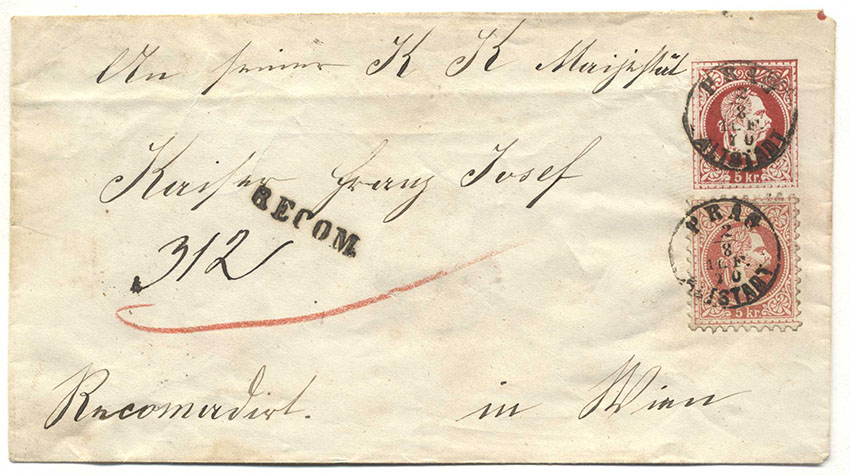 An seiner K K Maijestät
Kaiser Franz Josef
RECOM.
312
Recomerdirt.
in Wien
5 kr.
PRAG
2
8
70
ALTSTADT
5 kr.
PRAG
2
8
70
ALTSTADT